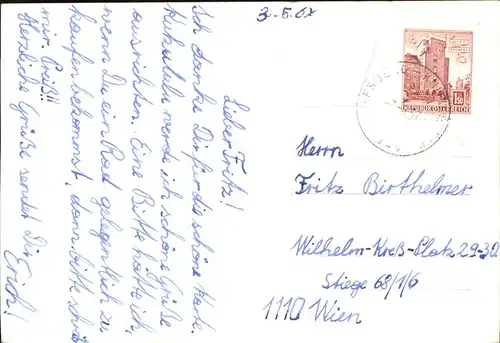 3.5.67
Lieber Fritz!
Ich danke Dir für die schöne Karte.
werde ich schöne Grüße
ausrichten. Eine Bitte hätte ich,
wenn Du ein Rad gelegentlich zu
kaufen bekommst, dann bitte schreib
mir. Preiß!!
Herzliche Grüße sendet Dir
Erich!
REPUBLIK ÖSTERREICH
Herrn
Fritz Birthelmer
Wilhelm-Kreß-Platz 29-30
Stiege 68/1/6
1110 Wien